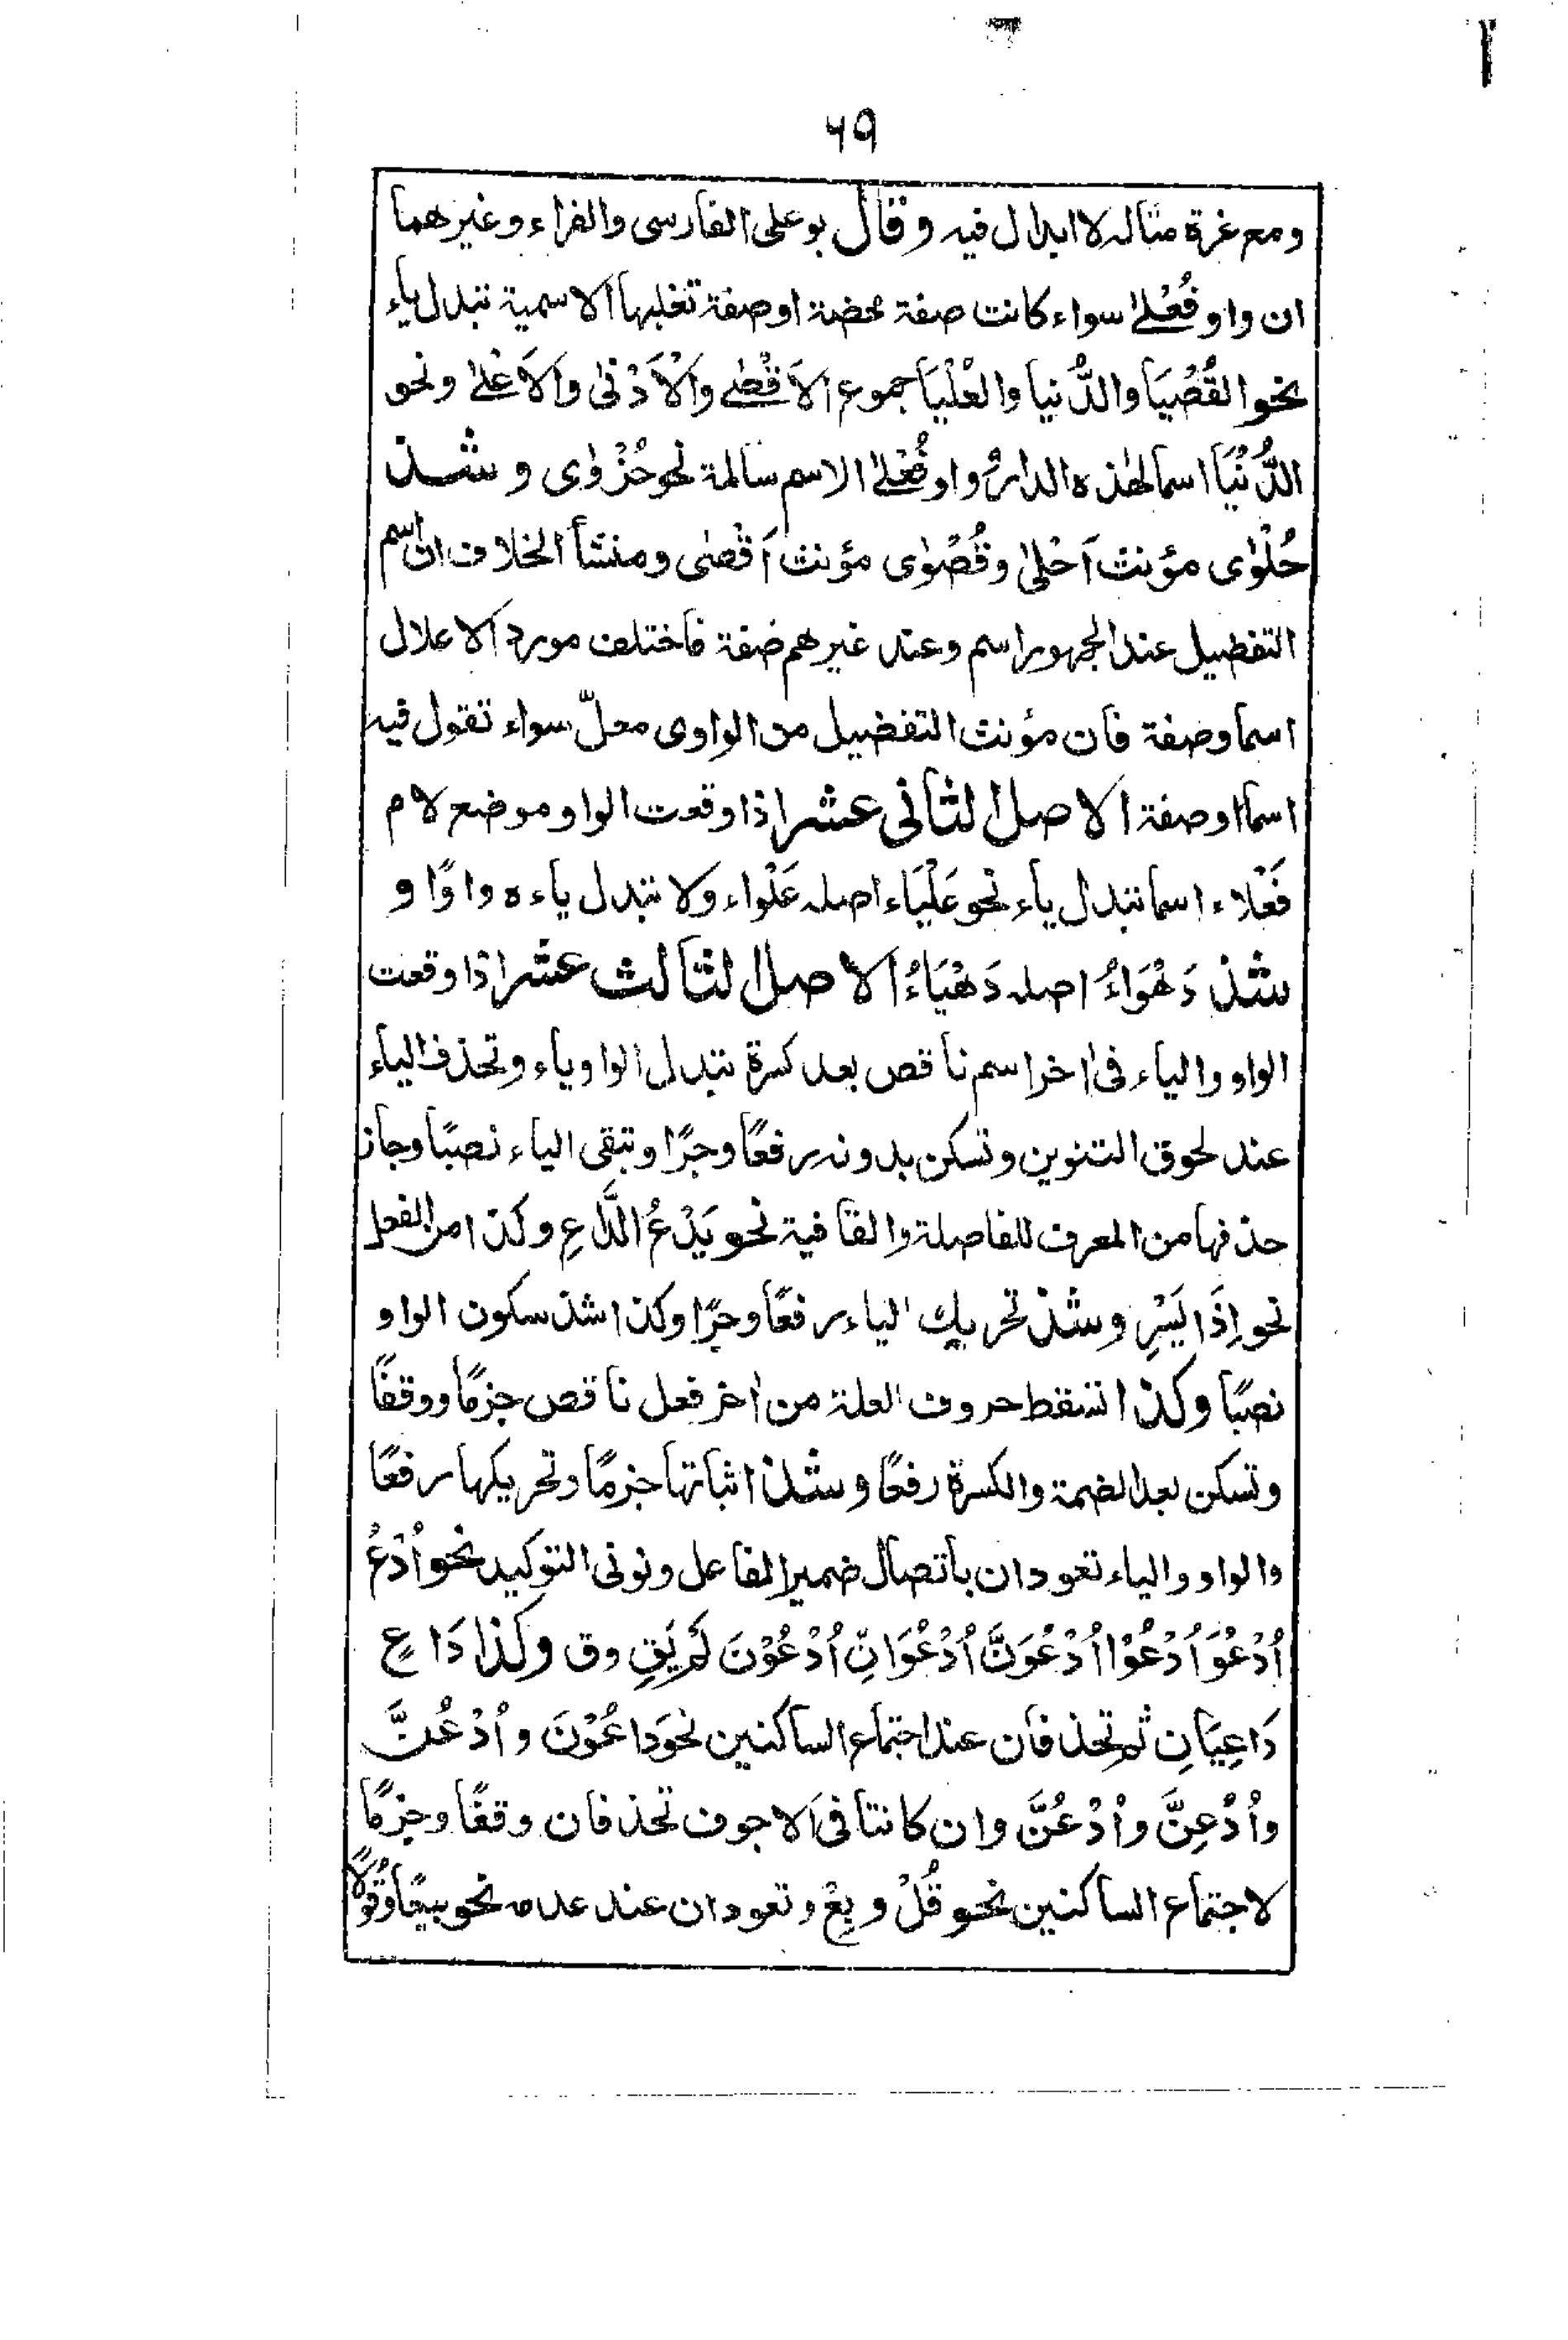 ٦٩
ومع غرة مثاله لا ابدال فيه وقال بو على الفارسى والفراء وغيرهما
ان واو فُعْلىٰ سواء كانت صفة محضة او صفة تغلبها الاسمية تبدل ياء
نحو القُصْيَا والدُّنيا والعُلْيَا جموع الاَقْصٰے والْاَدْنٰى والاَعْلىٰ ونحو
الدُّنْيَا اسما لهٰذه الدار و واو فُعْلىٰ الاسم سالمة نحو حُزْوٰى و شذ
حُلْوٰى مؤنث اَحْلىٰ وقُصْوٰى مؤنث اَقْصٰى ومنشأ الخلاف ان اسم
التفضيل عند الجمهور اسم وعند غيرهم صفة فاختلف مورد الاعلال
اسما وصفة فان مؤنث التفضيل من الواوى معلّ سواء تقول فيه
اسما او صفة الاصل الثانى عشر اذا وقعت الواو موضع لام
فَعْلاء اسما تبدل ياء نحو عَلْيَاء اصله عَلْواء ولا تبدل ياءه واوًا و
شذ دَهْوَاءُ اصله دَهْيَاءُ الاصل الثالث عشر اذا وقعت
الواو والياء فى اٰخر اسم ناقص بعد كسرة تبدل الواو ياء وتحذف الياء
عند لحوق التنوين وتسكن بدونه رفعًا وجرًا وتبقى الياء نصبًا وجاز
حذفها من المعرف للفاصلة والقافية نحو يَدْعُ الدَّاعِ وكذا من الفعل
نحو اِذَا يَسْرِ وشذ تحريك الياء رفعًا وجرًا وكذا شذ سكون الواو
نصبًا وكذا تسقط حروف العلة من اٰخر فعل ناقص جزمًا ووقفًا
وتسكن بعد الضمة والكسرة رفعًا وشذ اثباتها جزمًا وتحريكها رفعًا
والواو والياء تعودان باتصال ضمير الفاعل ونونى التوكيد نحو اُدْعُ
اُدْعُوَا اُدْعُوْا اُدْعُوَنَّ اُدْعُوَانِّ اُدْعُوْنَ لَمْ يَقِ وق وكذا دَاعٍ
دَاعِيَانِ ثم تحذفان عند اجتماع الساكنين نحو دَاعُوْنَ واُدْعُنَّ
واُدْعِنَّ واُدْعُنَّ وان كانتا فى الاجوف تحذفان وقفًا وجزمًا
لاجتماع الساكنين نحو قُلْ وبِعْ وتعودان عند عدمه نحو بيعًا وقُوْلًا